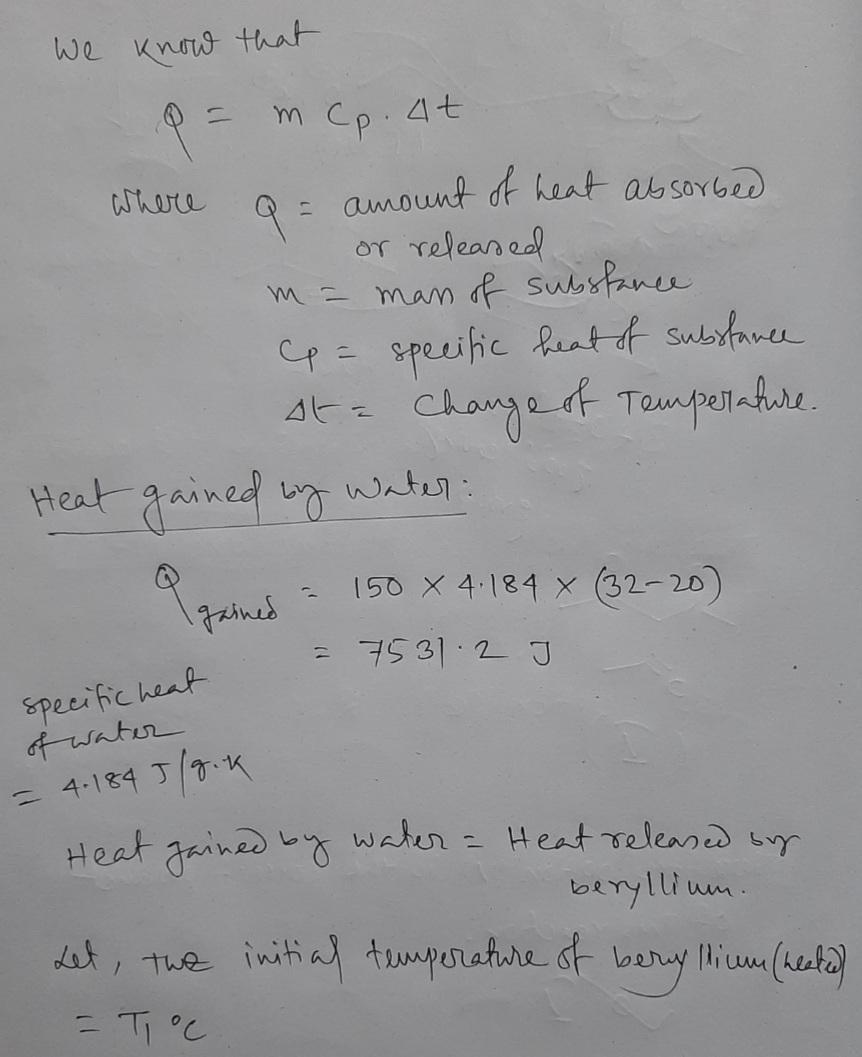 We know that
Q = m Cp. Δt
where Q = amount of heat absorbed
or released
m = mass of substance
Cp = specific heat of substance
Δt = Change of Temperature.
Heat gained by water:
Q gained = 150 × 4.184 × (32-20)
= 7531.2 J
specific heat
of water
= 4.184 J/g.K
Heat gained by water = Heat released by
beryllium.
Let, the initial temperature of beryllium (heated)
= T1 °C